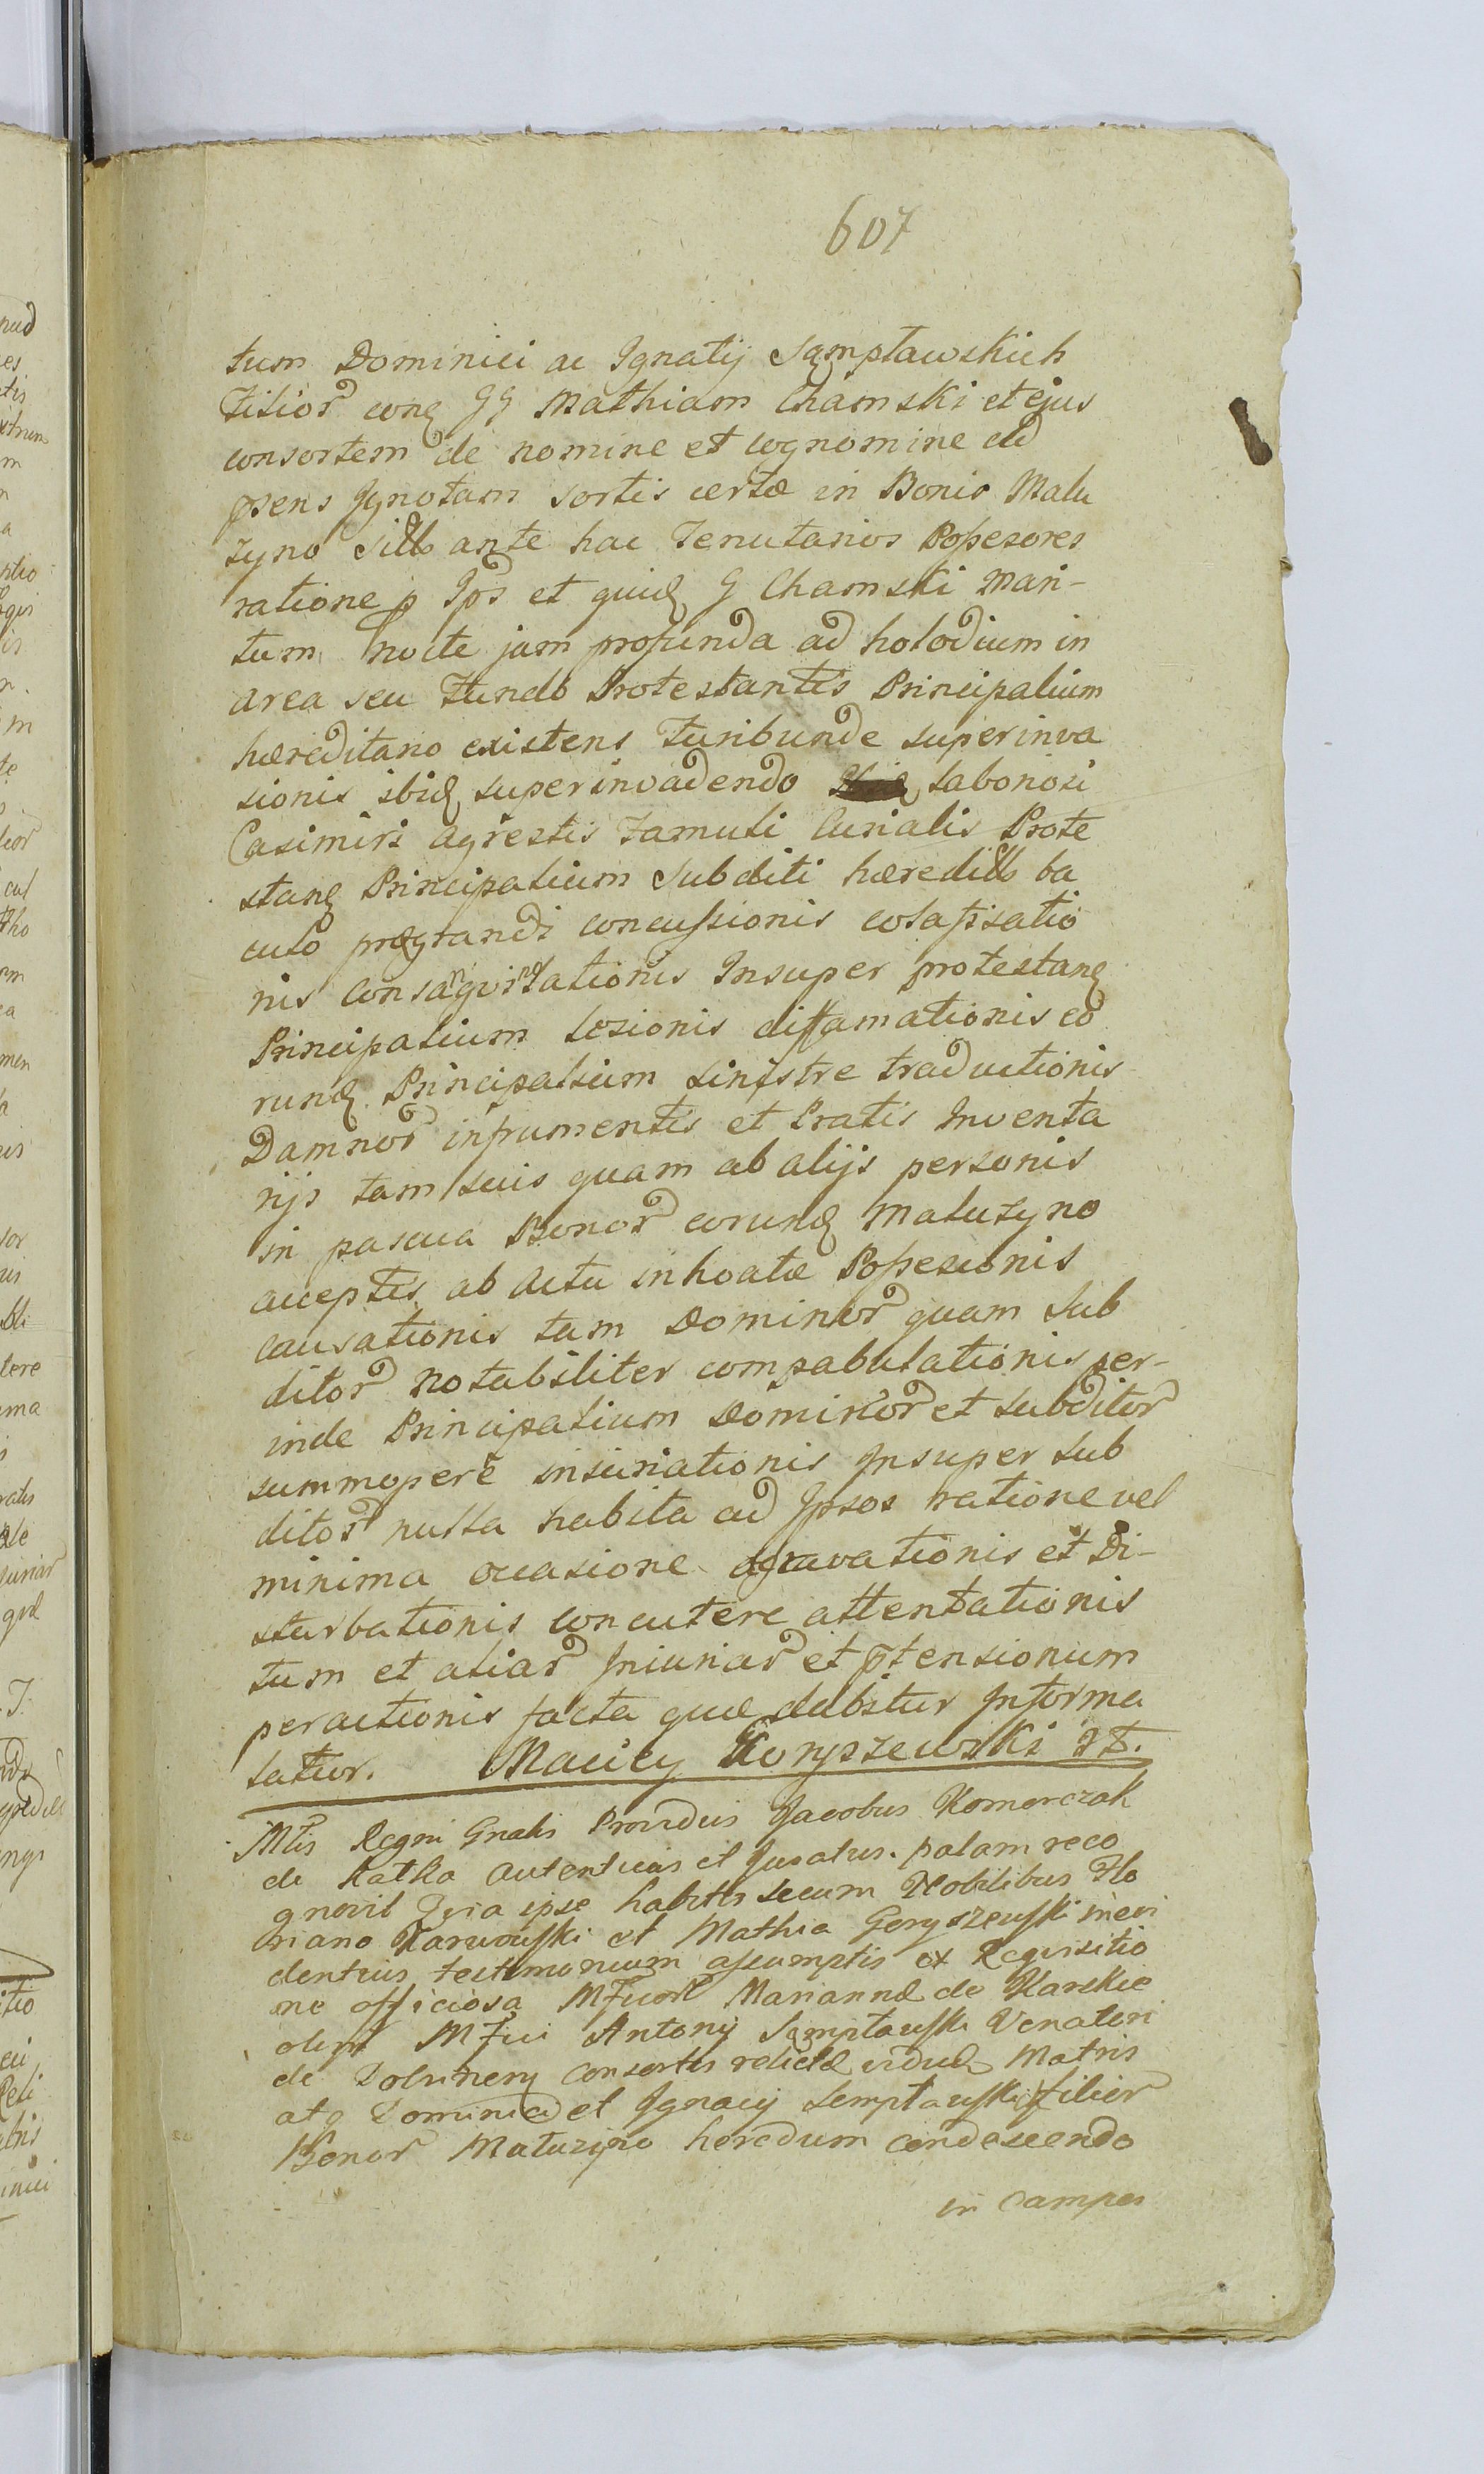 607
tum Dominici ac Ignatij Sąmpławskich
Filior cong GG Mathiam Chamski et ejus
consortem de nomine et cognomine ad
psens Ignotam sortis certæ in Bonis Malu
zyno sitæ ante hac Tenutarios Possesores
ratione p Ips et quidę G Chamski Mari-
tum nocte jam profunda ad holodium in
area seu Fundo Protestantis Principalium
hæreditario existens Furibunde superinva
sionis ibidę superinvadendo laboriosi
Casimiri agrestis Famuli Curialis Prote
stang Principalium subditi hæredit ba
culo prægrandi concussionis colafisatio
nis consangvinlationis Insuper protestang
Principalium læsionis diffamationis eo
rundę Principalium sinistre traductionis
Damnor in frumentis et Pratis Inventa
rijs tam suis quam ab alijs personis
in pascua Bonor eorundę Maluzyno
acceptis ab actu inhoatæ Possesionis
causationis tam Dominor quam sub
ditor notabiliter compabulationis per-
inde Principalium Dominor et subditor
summopere iniuriationis Insuper sub
ditor nulla habita ad Ipsos ratione vel
minima occasione agravationis et Di-
sturbationis concutere attentationis
tum et aliar Iniuriar et ptensionum
peractionis facta quæ dabitur Informa
latior. Maciey Goryszewski
Mtis Regni Gnalis Providus Jacobus Komorczak
de Ratka autenticus et Juratus palam reco
gnovit Quia ipse habitis secum Nobilibus Flo
riano Karwowski et Mathia Goryszewski in evi
dentius testimonium assumptis ex Requisitio
ne officiosa Mficæ Mariannæ de Karskie
olim Mfici Antonij Sąmptawski Venatori
de consortis relictæ viduæ Matris
atq Dominici et Ignacij Semptawski filior
Bonor Maluzyno heredum condescendo
in Campos